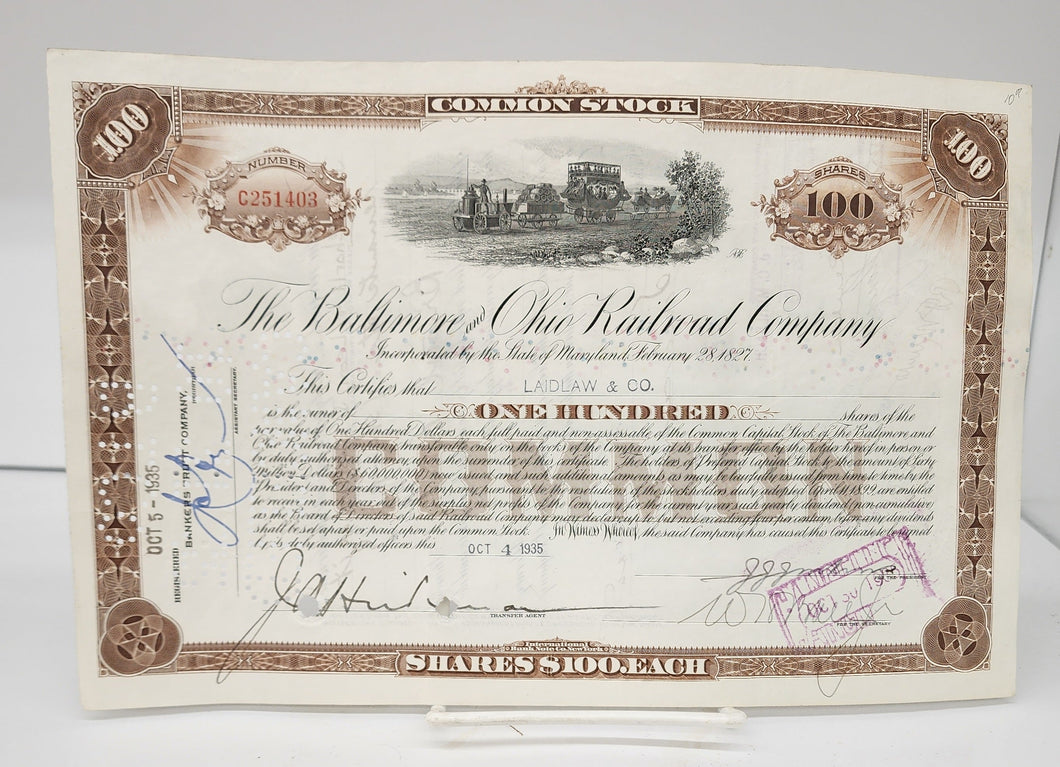 COMMON STOCK
100
100
NUMBER
C251403
SHARES
100
The Baltimore and Ohio Railroad Company
Incorporated by the State of Maryland, February 28, 1827.
This Certifies that LAIDLAW & CO.
is the owner of ONE HUNDRED shares of the
par value of One Hundred Dollars each full paid and non-assessable of the Common Capital Stock of The Baltimore and
Ohio Railroad Company, transferable only on the books of the Company at its transfer office by the holder hereof in person or
by duly authorized attorney upon the surrender of this certificate. The holders of Preferred Capital Stock to the amount of Sixty
Million Dollars ($60,000,000) now issued and such additional amounts as may be lawfully issued from time to time by the
President and Directors of the Company, pursuant to the resolution of the stockholders duly adopted April 11, 1899, are entitled
to receive in each year out of the surplus net profits of the Company for the current year such yearly dividends, non-cumulative,
as the Board of Directors of said Railroad Company may declare up to but not exceeding four per centum, before any dividends
shall be set apart or paid upon the Common Stock. In Witness Whereof, the said Company has caused this Certificate to be signed
by its duly authorized officers this OCT 4 1935
COMMON
REGISTERED OCT 5 - 1935
BANKERS TRUST COMPANY,
REGISTRAR
ASSISTANT SECRETARY.
TRANSFER AGENT
FOR THE PRESIDENT
FOR THE SECRETARY
International
Bank Note Co. New York
SHARES $100. EACH